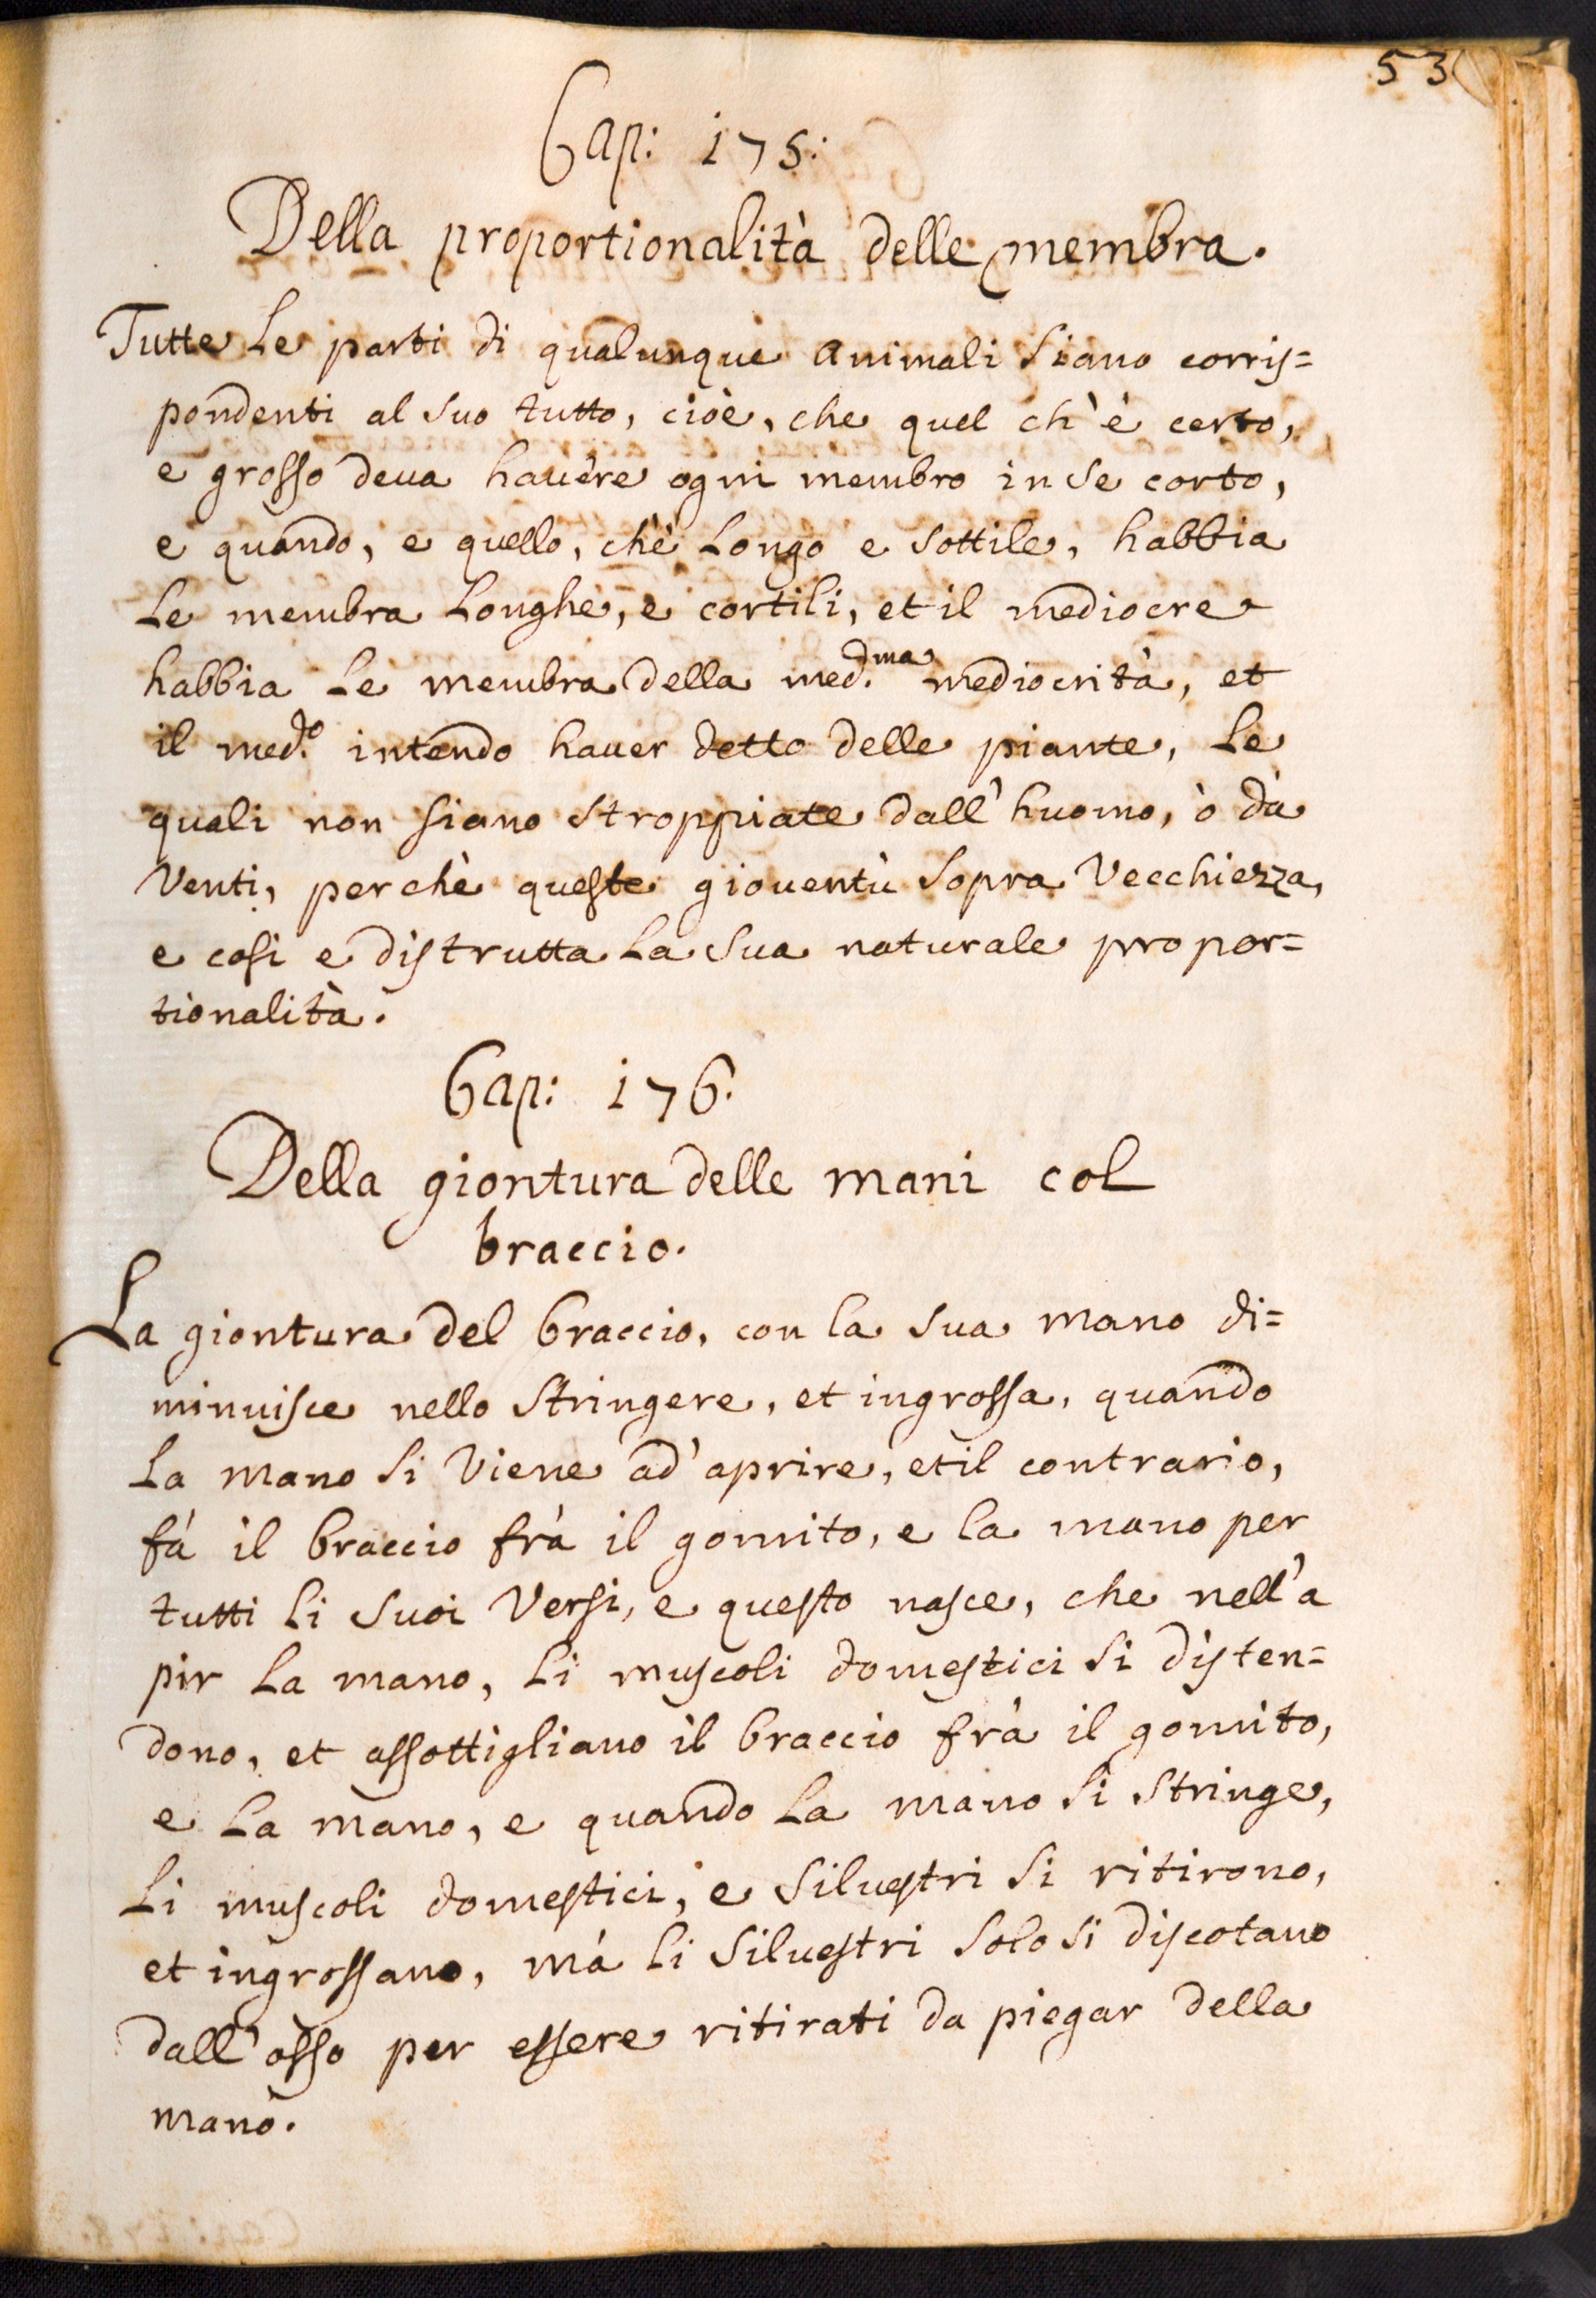 53
Cap: 175:
Della proportionalità delle membra.
Tutte le parti di qualunque animali siano corris=
pondenti al suo tutto, cioè, che quel ch'è certo,
e grosso deua hauère ogni membro in se corto,
e quando, e quello, ch'è longo e sottile, habbia
le membra longhe, e cortili, et il mediocre
habbia le membra della med.ma mediocrità, et
il med.o intendo hauer detto delle piante, le
quali non siano stroppiate dall'huomo, ò dà
Venti, perchè queste giouentù sopra Vecchiezza,
e cosi e distrutta la sua naturale propor=
tionalità.
Cap: 176.
Della giontura delle mani col
braccio.
La giontura del braccio, con la sua mano di=
minuisce nello stringere, et ingrossa, quando
la mano si viene ad'aprire, et il contrario,
fà il braccio frà il gomito, e la mano per
tutti li suoi Versi, e questo nasce, che nell'a
pir la mano, li muscoli domestici si disten=
dono, et assottigliano il braccio frà il gomito,
e la mano, e quando la mano si stringe,
li muscoli domestici, e siluestri si ritirono,
et ingrossano, mà li siluestri solo si discotano
dall'osso per essere ritirati da piegar della
mano.